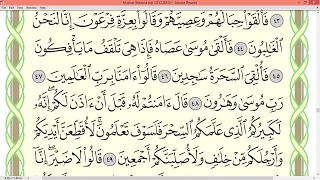 ٤٣ فَأَلْقَوْا۟ حِبَالَهُمْ وَعِصِيَّهُمْ وَقَالُوا۟ بِعِزَّةِ فِرْعَوْنَ إِنَّا لَنَحْنُ
ٱلْغَـٰلِبُونَ ٤٤ فَأَلْقَىٰ مُوسَىٰ عَصَاهُ فَإِذَا هِىَ تَلْقَفُ مَا يَأْفِكُونَ
٤٥ فَأُلْقِىَ ٱلسَّحَرَةُ سَـٰجِدِينَ ٤٦ قَالُوٓا۟ ءَامَنَّا بِرَبِّ ٱلْعَـٰلَمِينَ ٤٧
رَبِّ مُوسَىٰ وَهَـٰرُونَ ٤٨ قَالَ ءَامَنتُمْ لَهُۥ قَبْلَ أَنْ ءَاذَنَ لَكُمْ إِنَّهُۥ
لَكَبِيرُكُمُ ٱلَّذِى عَلَّمَكُمُ ٱلسِّحْرَ فَلَسَوْفَ تَعْلَمُونَ لَأُقَطِّعَنَّ أَيْدِيَكُمْ
وَأَرْجُلَكُم مِّنْ خِلَـٰفٍ وَلَأُصَلِّبَنَّكُمْ أَجْمَعِينَ ٤٩ قَالُوا۟ لَا ضَيْرَ إِنَّآ